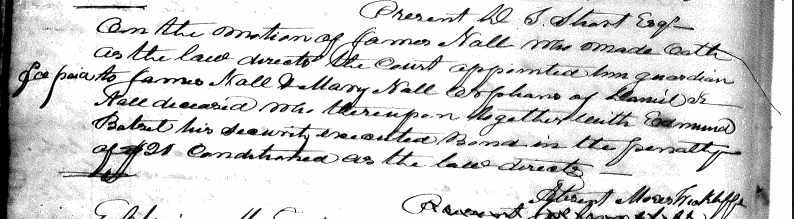 Present D. S. Short Esqr
On the motion of James Nall who made oath
as the law directs the court appointed him guardian
fee paid to James Nall & Mary Nall orphans of Daniel
Nall deceased who thereupon together with Edmund
his security executed Bond in the penalty
of conditioned as the law directs
Moses Wickliffe